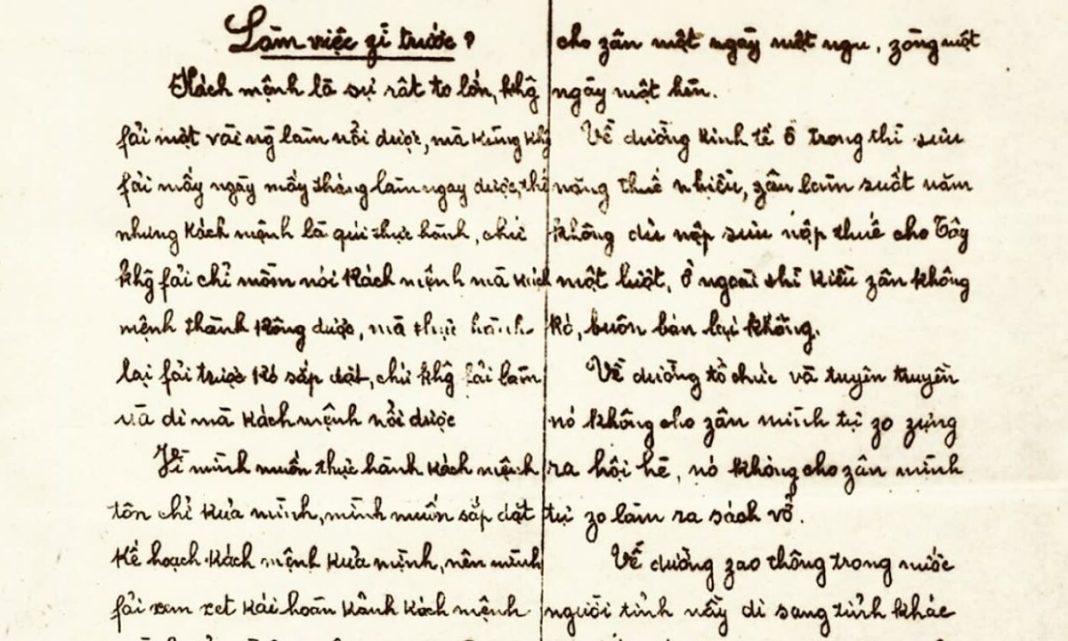 Làm việc zì trước?
Kách mệnh là sự rât to lớn, khg
fải một vài ng làm nổi được, mà kũng khg
fải mấy ngày mấy tháng làm ngay được, thế
nhưng kách mệnh là quí thực hành, chứ
khg fải chỉ mồm nói kách mệnh mà kách
mệnh thành kông được, mà thực hành
lại fải trước kó sắp đặt, chứ khg fải làm
và đi mà kách mệnh nổi được
Vì mình muốn thực hành kách mệnh
tôn chỉ kủa mình, mình muốn sắp đặt
kế hoạch kách mệnh kủa mình, nên mình
fải xem xet kái hoàn kảnh kách mệnh
cho zân một ngày một ngu, zòng một
ngày một hèn.
Về đường kinh tế ở trong thì sưu
nặng thuế nhiều, zân làm suốt năm
không đủ nộp sưu nộp thuế cho Tây
một lượt, ở ngoài thì kiều zân không
kó, buôn bán lại không.
Về đường tổ chức và tuyên truyền
nó không cho zân mình tự zo zựng
ra hội hè, nó không cho zân mình
tự zo làm ra sách vở.
Về đường zao thông trong nước
người tỉnh nầy đi sang tỉnh khác